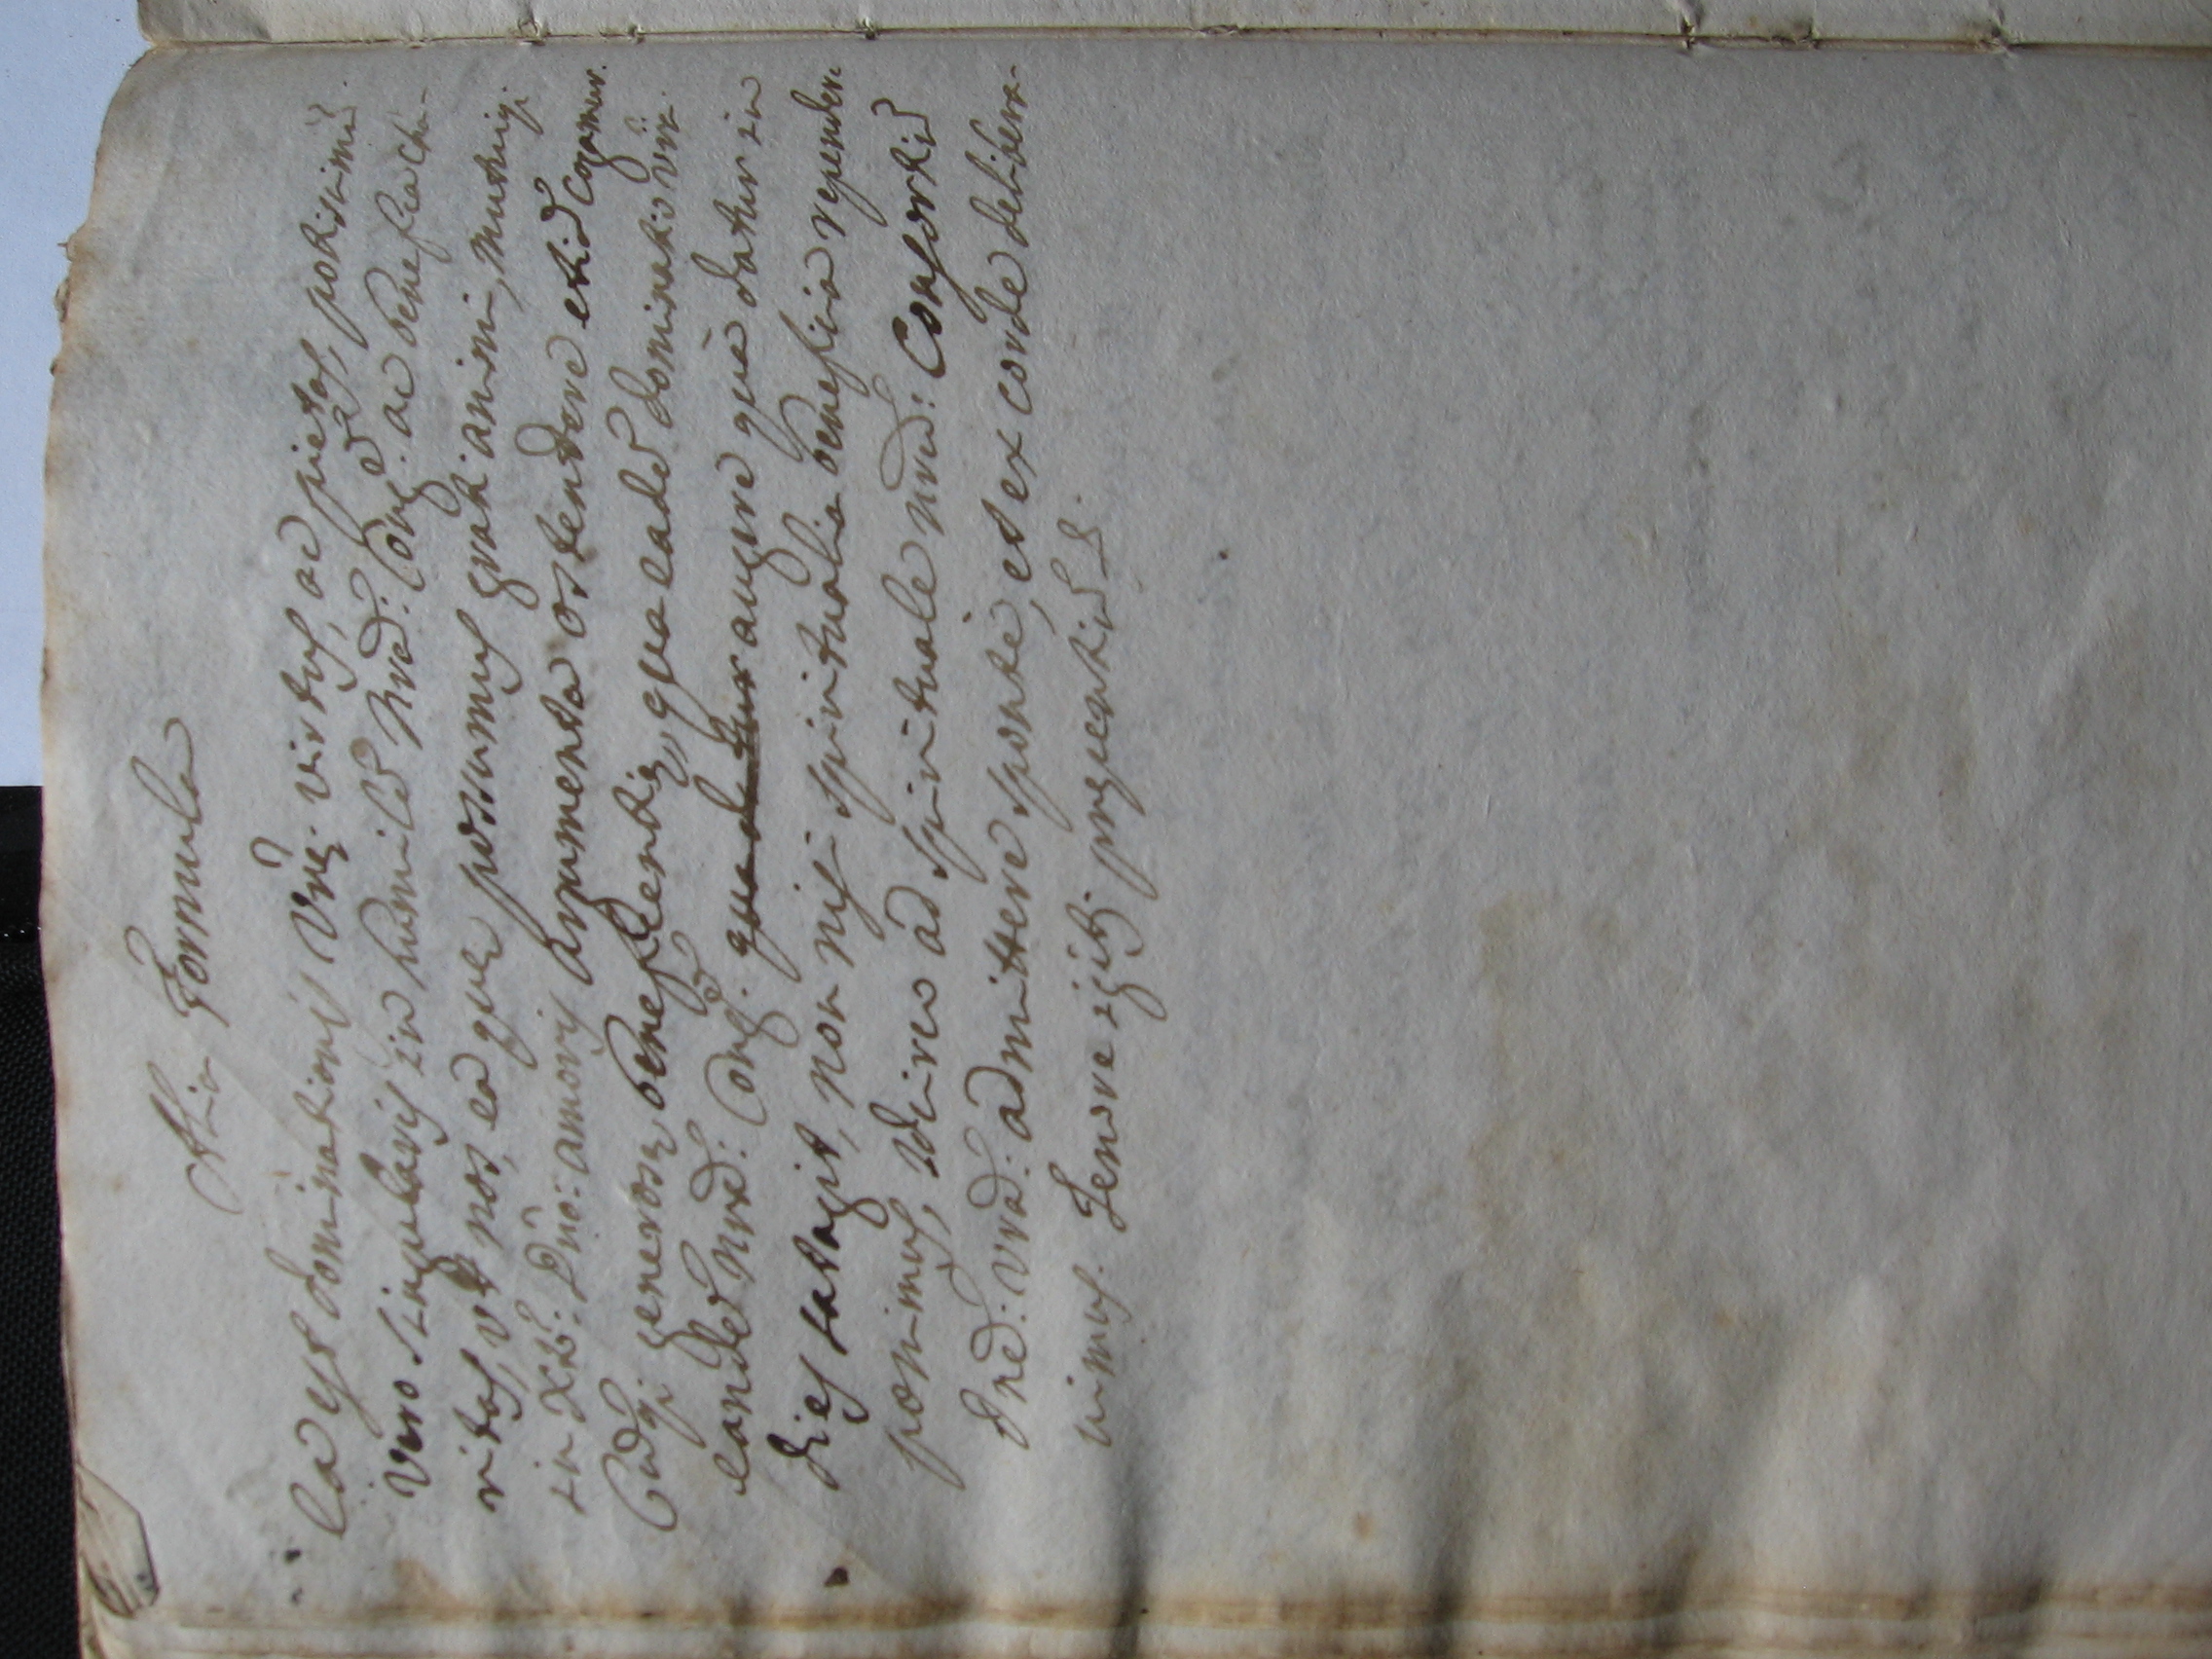 Alia Formula
Ea est dominationis Vrae. virtus, ac pietas, potissimu
vero singularis in humile Nram: Cong. ac benefica cha-
ritas, ut nos, ea quae possumus grati animi, mutuiq.
in Xto: Dno: amoris argumenta ostendere etia conamur.
generosae beneficentiae, qua eade dominatio vra
eande Nram: Cong. quada tur augere qua datur in
dies satagit, non nisi spiritualia beneficia rependere
possimus, idcirco ad spirituale nrae: Consortiu
Dne: vram: admittere sponte, et ex corde delibera-
vimus. Tenore igitur praesentiu &.